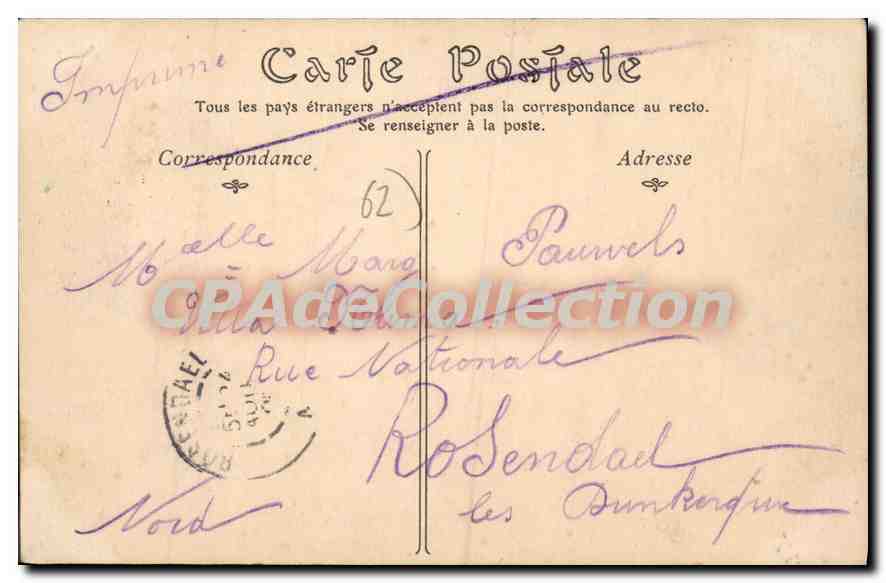 Imprimé
Carte Postale
Tous les pays étrangers n'acceptent pas la correspondance au recto.
Se renseigner à la poste.
Correspondance
Adresse
62
Melle Marg Pauwels
CPAdeCollection
Villa
Rue Nationale
ROSENDAEL
Rosendael
les Dunkerque
Nord